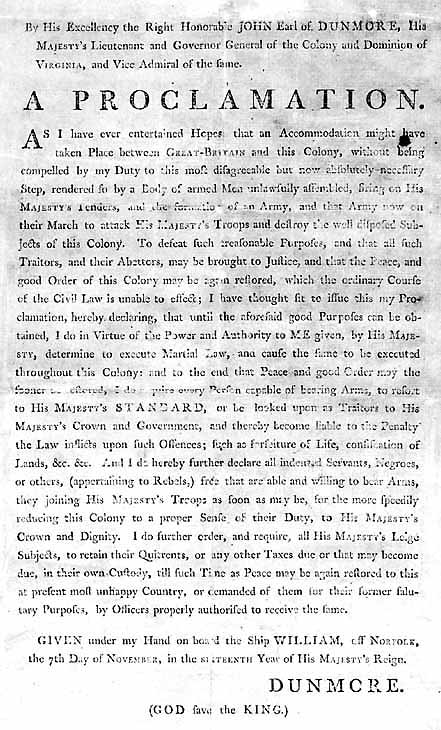 By His Excellency the Right Honorable JOHN Earl of DUNMORE, His
MAJESTY's Lieutenant and Governor General of the Colony and Dominion of
VIRGINIA, and Vice Admiral of the same.
A PROCLAMATION.
AS I have ever entertained Hopes that an Accommodation might have
taken Place between GREAT-BRITAIN and this Colony, without being
compelled by my Duty to this most disagreeable but now absolutely necessary
Step, rendered so by a Body of armed Men unlawfully assembled, firing on His
MAJESTY's Tenders, and the formation of an Army, and that Army now on
their March to attack His MAJESTY's Troops and destroy the well disposed Sub-
jects of this Colony. To defeat such treasonable Purposes, and that all such
Traitors, and their Abettors, may be brought to Justice, and that the Peace, and
good Order of this Colony may be again restored, which the ordinary Course
of the Civil Law is unable to effect; I have thought fit to issue this my Pro-
clamation, hereby declaring, that until the aforesaid good Purposes can be ob-
tained, I do in Virtue of the Power and Authority to ME given, by His MAJE-
STY, determine to execute Martial Law, and cause the same to be executed
throughout this Colony: and to the end that Peace and good Order may the
sooner be restored, I do require every Person capable of bearing Arms, to resort
to His MAJESTY's STANDARD, or be looked upon as Traitors to His
MAJESTY's Crown and Government, and thereby become liable to the Penalty
the Law inflicts upon such Offences; such as forfeiture of Life, confiscation of
Lands, &c. &c. And I do hereby further declare all indented Servants, Negroes,
or others, (appertaining to Rebels,) free that are able and willing to bear Arms,
they joining His MAJESTY's Troops as soon as may be, for the more speedily
reducing this Colony to a proper Sense of their Duty, to His MAJESTY's
Crown and Dignity. I do further order, and require, all His MAJESTY's Leige
Subjects, to retain their Quitrents, or any other Taxes due or that may become
due, in their own Custody, till such Time as Peace may be again restored to this
at present most unhappy Country, or demanded of them for their former salu-
tary Purposes, by Officers properly authorised to receive the same.
GIVEN under my Hand on board the Ship WILLIAM, off NORFOLK,
the 7th Day of NOVEMBER, in the SIXTEENTH Year of His MAJESTY's Reign.
DUNMORE.
(GOD save the KING.)